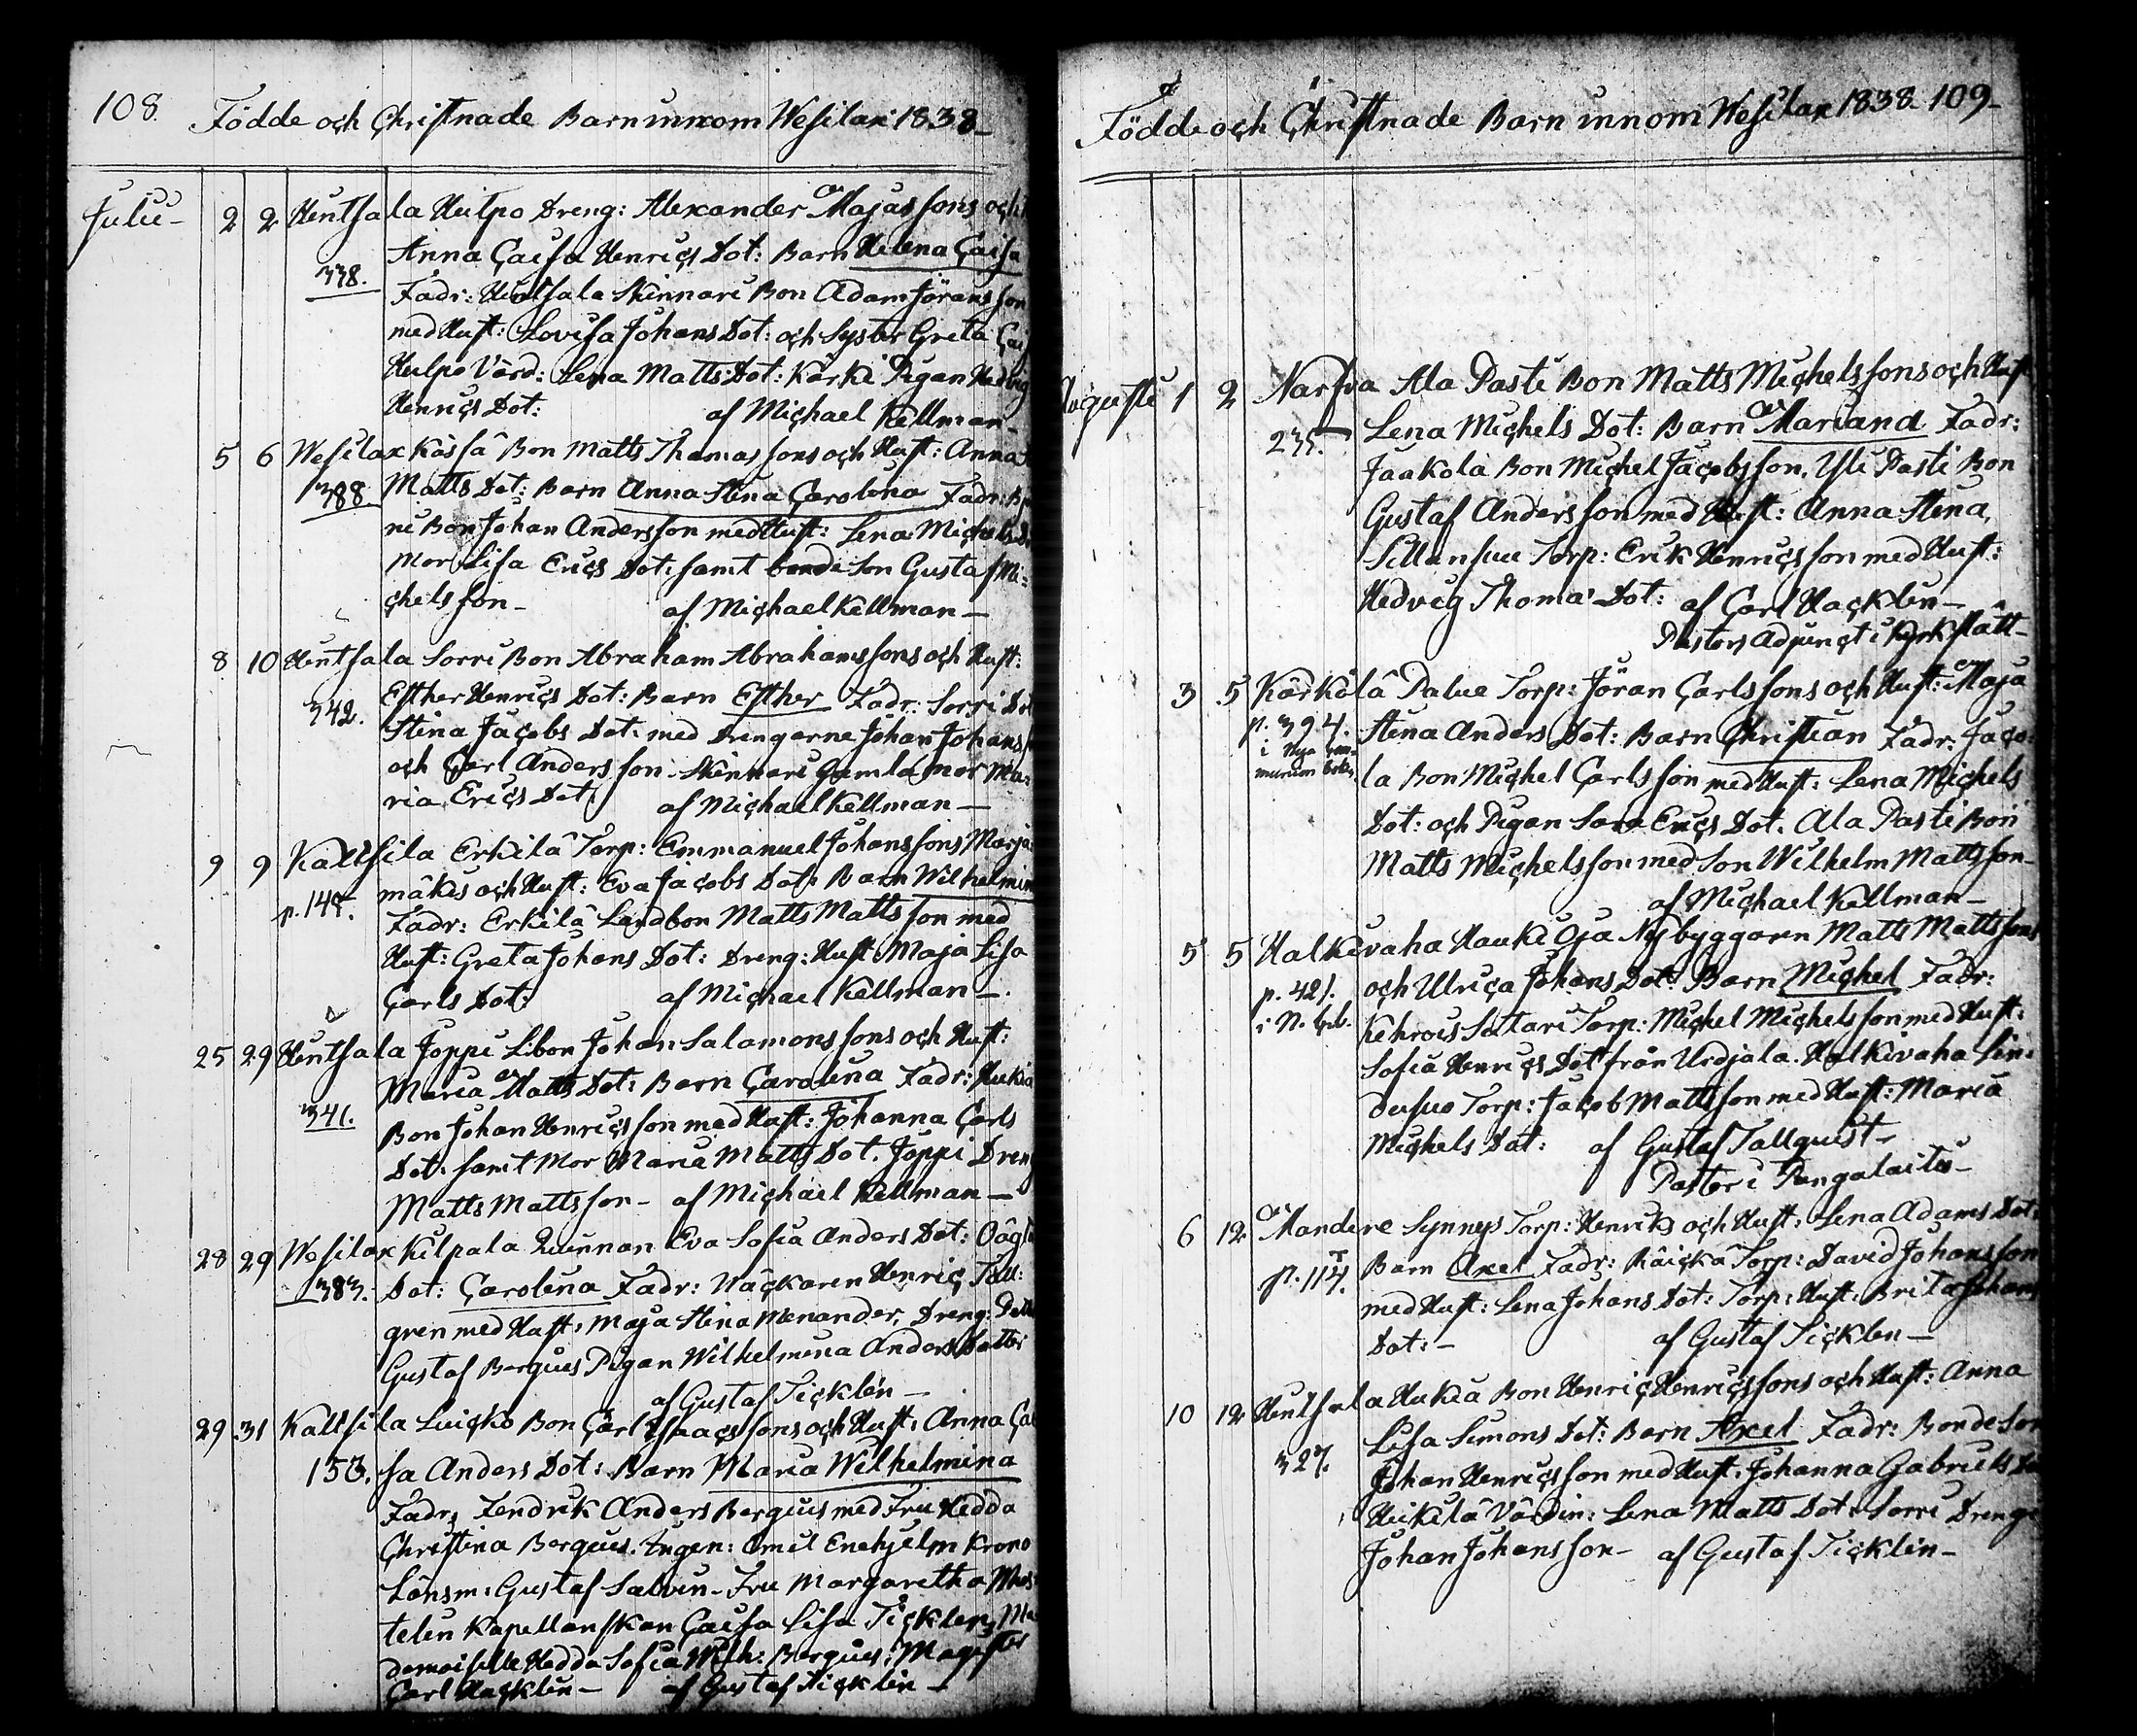 108. Födde och Christnade Barn innom Wesilax 1838
Julii 2 2 Hentsala Heilpo Dreng: Alexander Majassons och
Anna Caisa Henrics Dot: Barn Helena Caisa
338. Fadr: Hentsala Skinnari Bon Adam Jöransson
med Hust: Lovisa Johans Dot: och Syster Greta
Heilpo Värd: Lena Matts Dot: Kärki Pigan Hedvig
Henrics Dot: af Michael Kellman
5 6 Wesilax Kässä Bon Matts Thomassons och Hust: Anna
388. Matts Dot: Barn Anna Stina Carolina Fadr:
ni Bon Johan Andersson med Hust: Lena Michels
Mor Lisa Erics Dot: samt bonde Son Gustaf Mi=
chelsson af Michael Kellman
8 10 Hentsala Sorri Bon Abraham Abrahamssons och Hust:
342. Esther Henrics Dot: Barn Esther Fadr: Sorri
Stina Jacobs Dot: med Drengarne Johan Johans
och Carl Andersson Skinnari Gamla Mor Ma=
ria Erics Dot: af Michael Kellman
9 9 Kaltsila Erkilä Torp: Emmanuel Johanssons Marja=
mäkis och Hust: Eva Jacobs Dot: Barn Wilhelmin
Fadr: Erkilä Landbon Matts Mattsson med
Hust: Greta Johans Dot: Dreng: Hust: Maja Lisa
Carls Dot: af Michael Kellman
25 29 Hentsala Joppi Libon Johan Salamonssons och Hust:
Maria Matts Dot: Barn Carolina Fadr: Hukia
341. Bon Johan Henricsson med Hust: Johanna Carls
Dot: samt Mor Maria Matts Dot. Joppi Dreng
Matts Mattsson af Michael Kellman
28 29 Wesilax Kilpala Quinnan Eva Sofia Anders Dot: Oägta
383. Dot: Carolina Fadr: Henric Täll:
gren med Hust: Maja Stina Menander, Dreng:
Gustaf Bergius Pigan Wilhelmina Anders Dotter
af Gustaf Ticklén
29 31 Kaltsila Luicko Bon Carl Isaacssons och Hust: Anna Cai
153. sa Anders Dot: Barn Maria Wilhelmina
Fadr: Fendrik Anders Bergius med Fru Hedda
Christina Bergius. Ingen: Emil Enehjelm Krono
Länsm: Gustaf Salvén Fru Margaretha
telin Kapellanskan Caisa Lisa Ticklén, Ma
demoiselle Hedda Sofia Wilh: Bergius, Magister
Carl Hacklin af Gustaf Ticklén
Födde och Christnade Barn innom Wesilax 1838. 109
Augusti 1 2 Narfva Ala Pasti Bon Matts Michelssons och Hust
235. Lena Michels Dot: Barn Mariana Fadr:
Jaakola Bon Michel Jacobsson. Yli Pasti Bon
Gustaf Andersson med Hust: Anna Stina,
Sillansuu Torp: Erik Henricsson med Hust:
Hedvig Thomæ Dot: af Carl Hacklin
Pastors Adjunct i Kyrkslätt
3 5 Kärkölä Palue Torp: Jöran Carlssons och Hust: Maja
p. 394. Stina Anders Dot: Barn Christian Fadr: Jaco=
i Nya com=
munion boken
la Bon Michel Carlsson med Hust: Lena Michels
Dot: och Pigan Sara Erics Dot. Ala Pasti Bon
Matts Michelsson med Son Wilhelm Mattsson
af Michael Kellman
5 5 Halkivaha Hauki Oja Nybyggarn Matts Mattssons
p. 421. och Ulrica Johans Dot: Barn Michel Fadr:
i N. Cb.
Kehrois Satari Torp: Michel Michelsson med Hust:
Sofia Henrics Dot från Urdjala. Halkivaha Lin=
Torp: Jacob Mattsson med Hust: Maria
Michels Dot: af Gustaf Tallquist
Pastor i Pungalaitio
6 12 Mandere Synnys Torp: Henriks och Hust: Lena Adams Dot:
p. 114. Barn Axel Fadr: Räickä Torp: David Johansson
med Hust: Lena Johans Dot: Torp: Hust: Brita Johans
Dot: af Gustaf Ticklén
10 12 Hentsala Hukia Bon Henric Henricssons och Hust: Anna
327. Lisa Simons Dot: Barn Axel Fadr: Bonde Son
Johan Henricsson med Hust: Johanna Gabriels
Heikilä Värdin: Lena Matts Dot: Sorri Dreng
Johan Johansson af Gustaf Ticklén